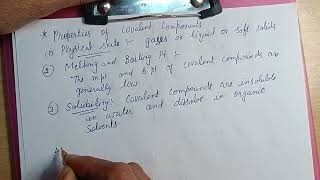 * Properties of Covalent Components
(1) Physical state :- gases or liquid or soft solids
(2) Melting and Boiling Pt :-
The m.pt and B.pt of covalent compounds are
generally low.
(3) Solubility :- Covalent compounds are insoluble
in water and dissolve in organic
Solvents.